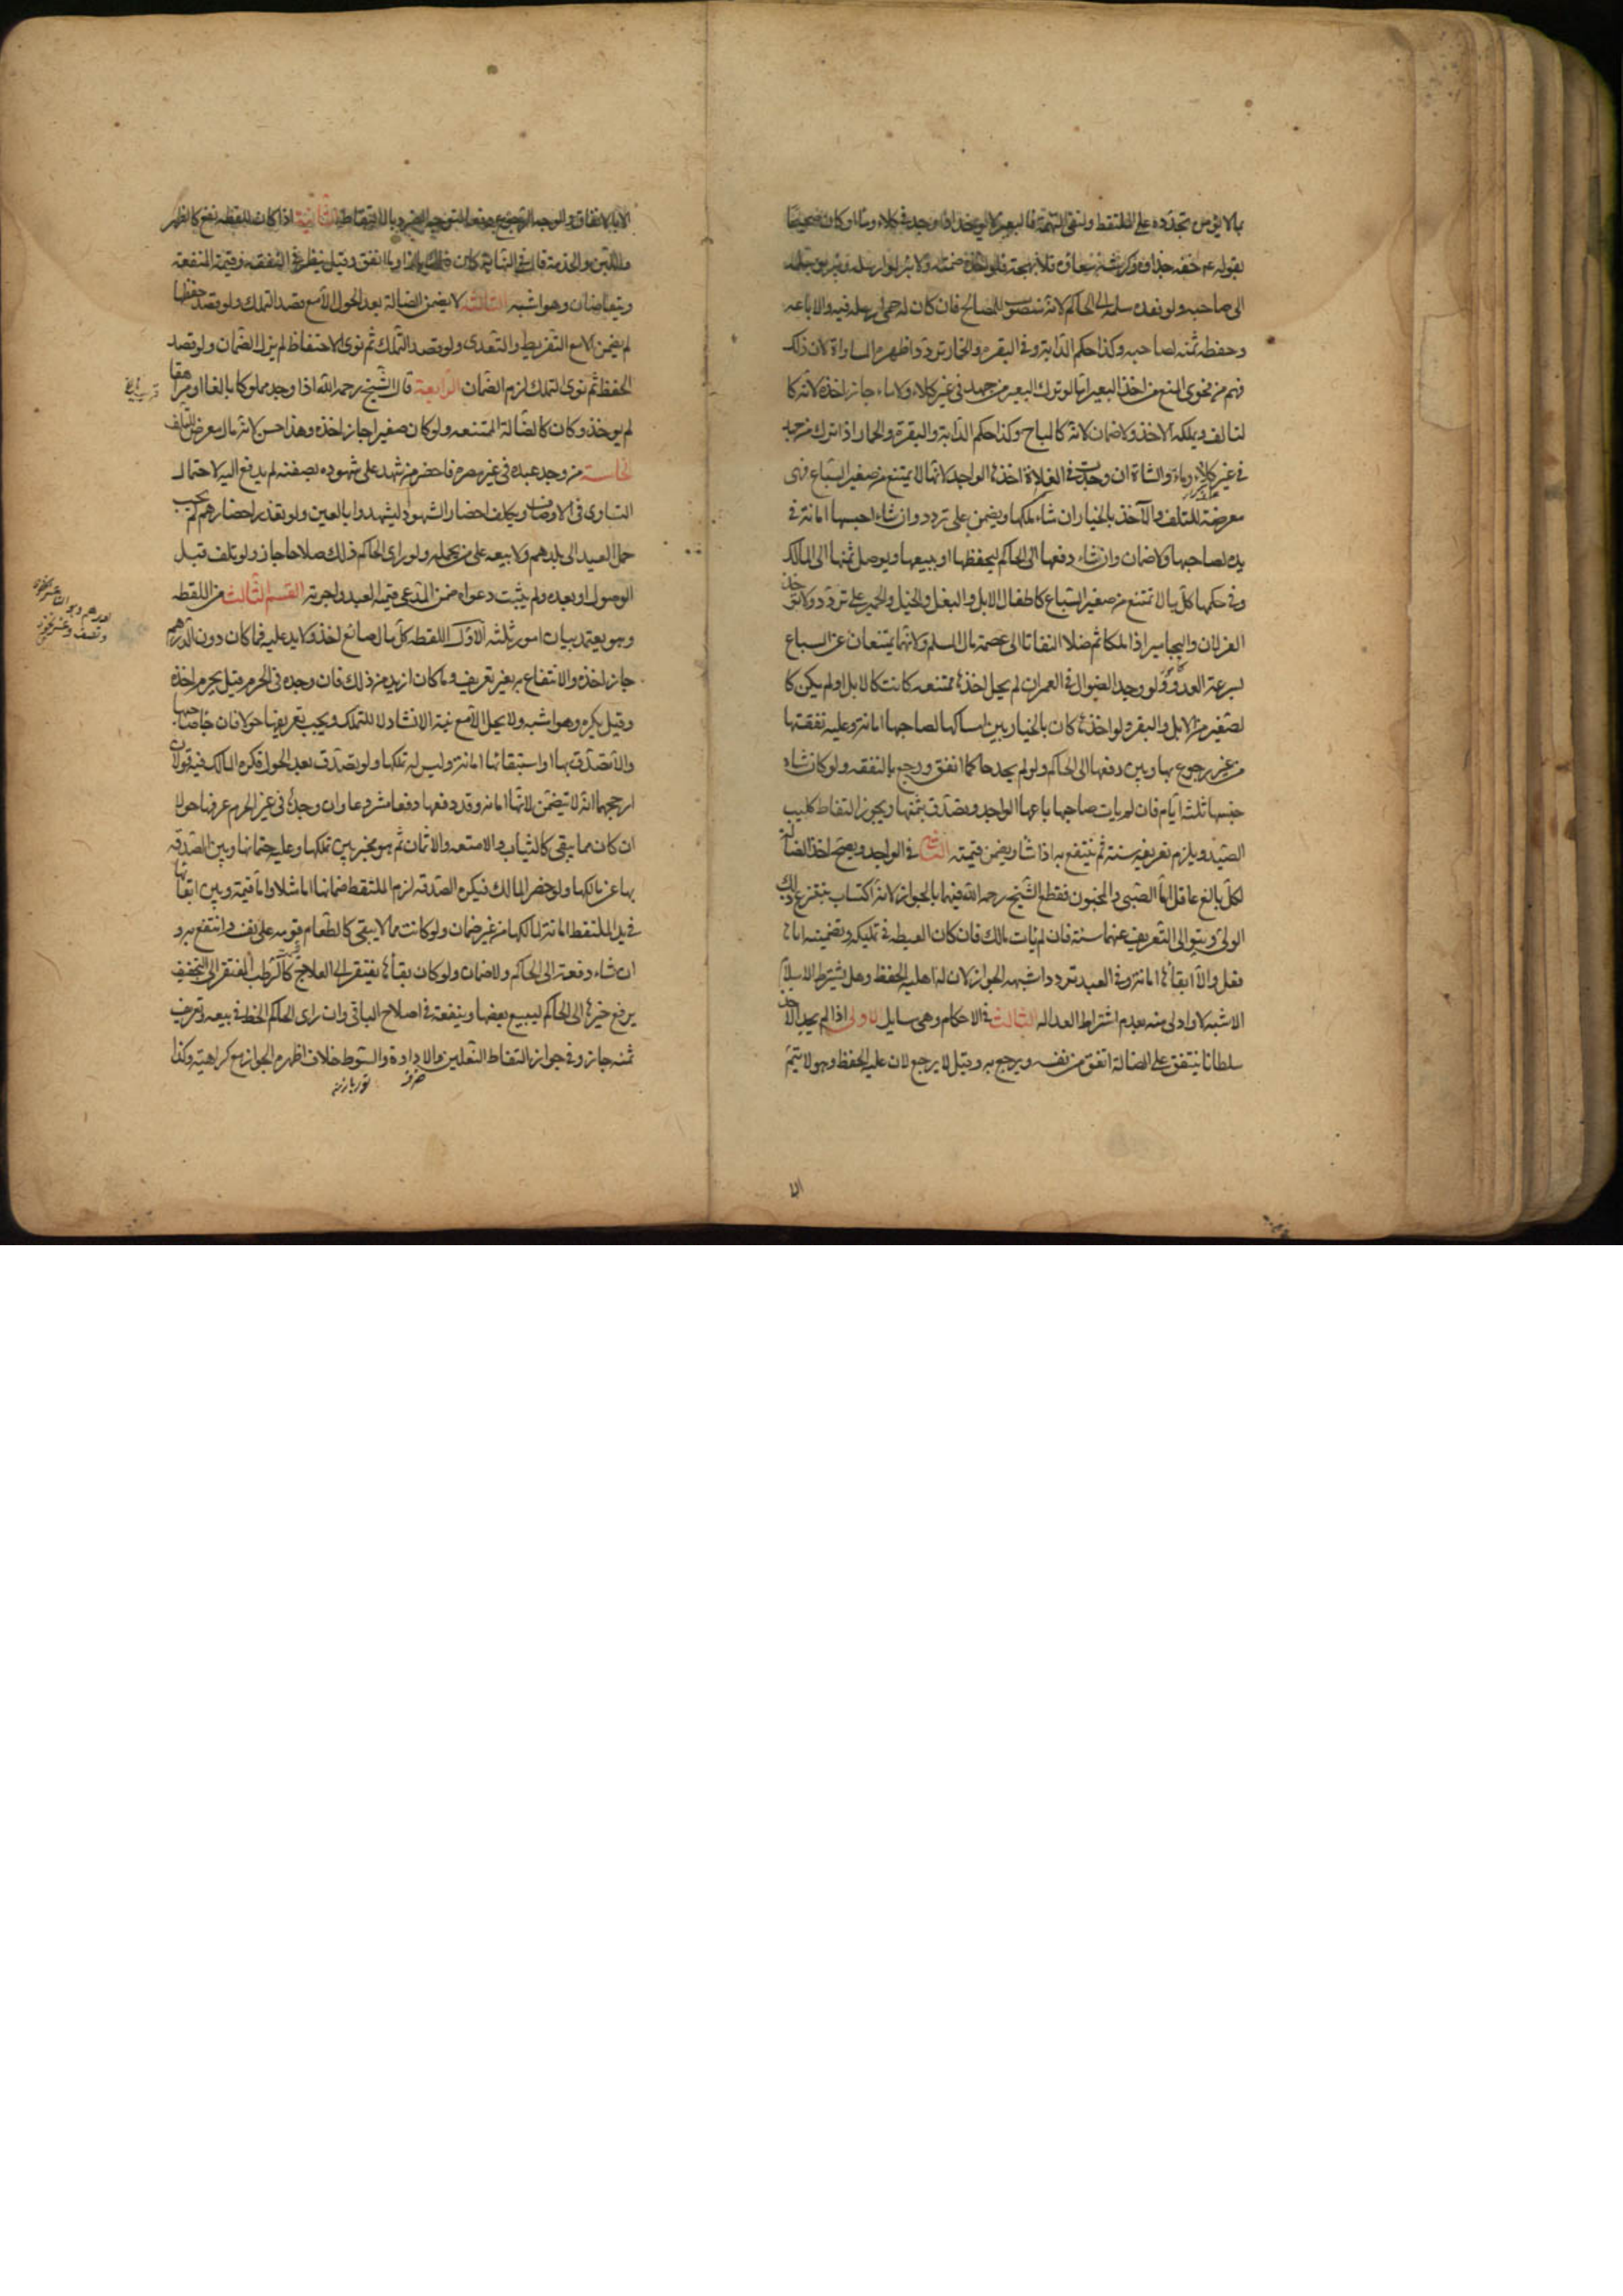 بما لا يؤمن تجدده على الملتقط ولنفى التهمة فالبعير لا يوخذ اذا وجد فى كلاء وماء او كان صحيحا
لقوله عم خفه حذاؤه وكرشه سقاؤه فلا تهجه فلو اخذه ضمنه ولا يبرا لو ارسله ويبرا لو سلمه
الى صاحبه ولو فقده سلمه الى الحاكم لانه منصوب للمصالح فان كان له حمى ارسله فيه والا باعه
وحفظ ثمنه لصاحبه وكذا حكم الدابة وفى البقرة والحمار تردد اظهره المساواة لان ذلك
فهم من فحوى المنع من اخذ البعير اما لو ترك البعير من جهد فى غير كلاء ولا ماء جاز اخذه لانه كا
لتالف ويملكه الاخذ ولا ضمان لانه كالمباح وكذا حكم الدابة والبقرة والحمار اذا ترك من جهد
فى غير كلاء وماء والشاة ان وجدت فى الفلاة اخذها الواجد لانها لا يمتنع من صغير السباع فهى
معرضة للتلف والآخذ بالخيار ان شاء ملكها ويضمن على تردد وان شاء احتبسها امانة فى
يده لصاحبها ولا ضمان وان شاء دفعها الى الحاكم ليحفظها او يبيعها ويوصل ثمنها الى المالك
وفى حكمها كل ما لا تمتنع من صغير السباع كاطفال الابل والبقر والخيل والحمير على تردد ولا توخذ
الغزلان واليحامير اذا ملكا ثم ضلا التفاتا الى عصمة مال المسلم ولانهما يمتنعان عن السباع
لسرعة العدو ولو وجد الضوال فى العمران لم يحل اخذها ممتنعة كانت كالابل او لم يكن كا
لصغير من الابل والبقر ولو اخذها كان بالخيار بين امساكها لصاحبها امانة وعليه نفقتها
من غير رجوع بها وبين دفعها الى الحاكم ولو لم يجد حاكما انفق ورجع بالنفقه ولو كان شاة
حبسها ثلثة ايام فان لم يات صاحبها باعها الواجد وتصدق بثمنها ويجوز التقاط كلب
الصيد ويلزم تعريفه سنة ثم ينتفع به اذا شاء ويضمن قيمته الثانى فى الواجد ويصح اخذ الضالة
لكل بالغ عاقل اما الصبى والمجنون فقطع الشيخ رحمه الله فيهما بالجواز لانه اكتساب وينتزع ذلك
الولى ويتولى التعريف عنهما سنة فان لم يات مالك فان كان الغبطه فى تمليكه وتضمينه اياها
فعل والا ابقاها امانة وفى العبد تردد اشبهه الجواز لان له اهلية الحفظ وهل يشترط الاسلام
الاشبه لا واولى منه بعدم اشتراط العداله الثالث فى الاحكام وهى مسايل الاولى اذا لم يجد الاخذ
سلطانا ينفق على الضالة انفق من نفسه ويرجع به وقيل لا يرجع لان عليه الحفظ وهو لا يتم
الا بالانفاق والوجه الرجوع دفعا لتوجه الضرر بالالتقاط الثانية اذا كان للقطه نفع كالظهر
واللبن والخدمة قال فى النهاية كان ذلك بازاء ما انفق وقيل ينظر فى النفقه وقيمة المنفعة
ويتقاصان وهو اشبه الثالثه لا يضمن الضالة بعد الحول الا مع قصد التملك ولو قصد حفظها
لم يضمن الا مع التفريط والتعدى ولو قصد التملك ثم نوى الاحتفاظ لم يزل الضمان ولو قصد
الحفظ ثم نوى التملك لزم الضمان الرابعة قال الشيخ رحمه الله اذا وجد مملوكا بالغا او مراهقا
لم يوخذ وكان كالضالة الممتنعه ولو كان صغيرا جاز اخذه وهذا حسن لانه مال معرض للتلف
الخامسة من وجد عبده فى غير مصره فاحضر من شهد على شهوده بصفته لم يدفع اليه لاحتمال
التساوى فى الاوصاف ويكلف احضار الشهود ليشهدوا بالعين ولو تعذر احضارهم لم يجب
حمل العبد الى بلدهم ولا بيعه على من يحمله ولو راى الحاكم ذلك صلاحا جاز ولو تلف قبل
الوصول او بعده ولم يثبت دعواه ضمن المدعى قيمة العبد واجرته القسم الثالث فى اللقطه
وهو يعتمد بيان امور ثلثة الاول اللقطه كل مال ضائع اخذ ولا يد عليه فما كان دون الدرهم
جاز اخذه والانتفاع به بغير تعريف وما كان ازيد من ذلك فان وجده فى الحرم قيل يحرم اخذه
وقيل يكره وهو اشبه ولا يحل الا مع نية الانشاد لا للتملك ويجب تعريفها حولا فان جاء صاحبها
والا تصدق بها او استبقائها امانة وليس له تملكها ولو تصدق بعد الحول فكره المالك فيه قولان
ارجحهما انه لا يضمن لانها امانه وقد دفعها دفعا مشروعا وان وجدها فى غير الحرم عرفها حولا
ان كان مما يبقى كالثياب والامتعه والاثمان ثم هو مخير بين تملكها وعليه ضمانها وبين الصدقه
بها عن مالكها ولو حضر المالك فكره الصدقه لزم الملتقط ضمانها اما مثلا واما قيمة وبين ابقائها
فى يد الملتقط امانة لمالكها من غير ضمان ولو كانت مما لا يبقى كالطعام قومه على نفسه وانتفع به و
ان شاء دفعه الى الحاكم ولا ضمان ولو كان بقاؤها يفتقر الى العلاج كالرطب المفتقر الى التجفيف
يرفع خبرها الى الحاكم ليبيع بعضها وينفقه فى اصلاح الباقى وان راى الحاكم الحظ فى بيعه وتعريف
ثمنه جاز وفى جواز التقاط النعلين والاداوة والسوط خلاف اظهره الجواز مع كراهية وكذا